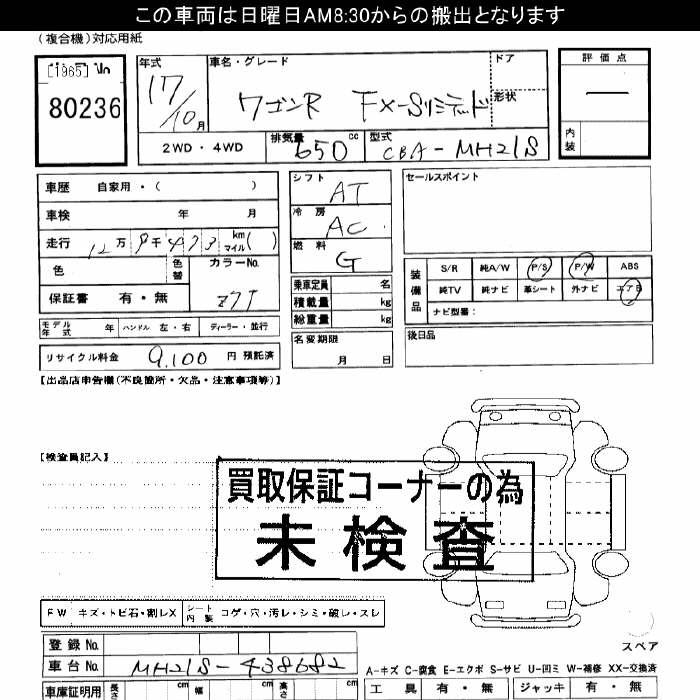 この車両は日曜日AM8:30からの搬出となります
(複合機)対応用紙
[1965]
80236
年式
17/10月
車名・グレード
ワゴンR FX-Sリミテッド
ドア
形状
評価点
内装
2WD・4WD
排気量 650 cc
型式 CBA-MH21S
車歴 自家用・( )
車検 年 月
走行 12万9千473 km マイル( )
色
色替
カラーNo.
Z7T
保証書 有・無
シフト AT
冷房 AC
燃料 G
乗車定員 名
積載量 kg
総重量 kg
名変期限
月 日
セールスポイント
装備品
S/R 純A/W P/S P/W ABS
純TV 純ナビ 革シート 外ナビ エアB
ナビ型番:
後日品
モデル年式 年 ハンドル 左・右 ディーラー・並行
リサイクル料金 9,100 円 預託済
【出品店申告欄(不良箇所・欠品・注意事項等)】
【検査員記入】
買取保証コーナーの為
未検査
FW キズ・トビ石・割レX シート内装 コゲ・穴・汚レ・シミ・破レ・スレ
スペア
登録No.
車台No. MH21S-438682
A-キズ C-腐食 E-エクボ S-サビ U-凹ミ W-補修 XX-交換済
車庫証明用 長さ cm 幅 cm 高さ cm
工具 有・無 ジャッキ 有・無